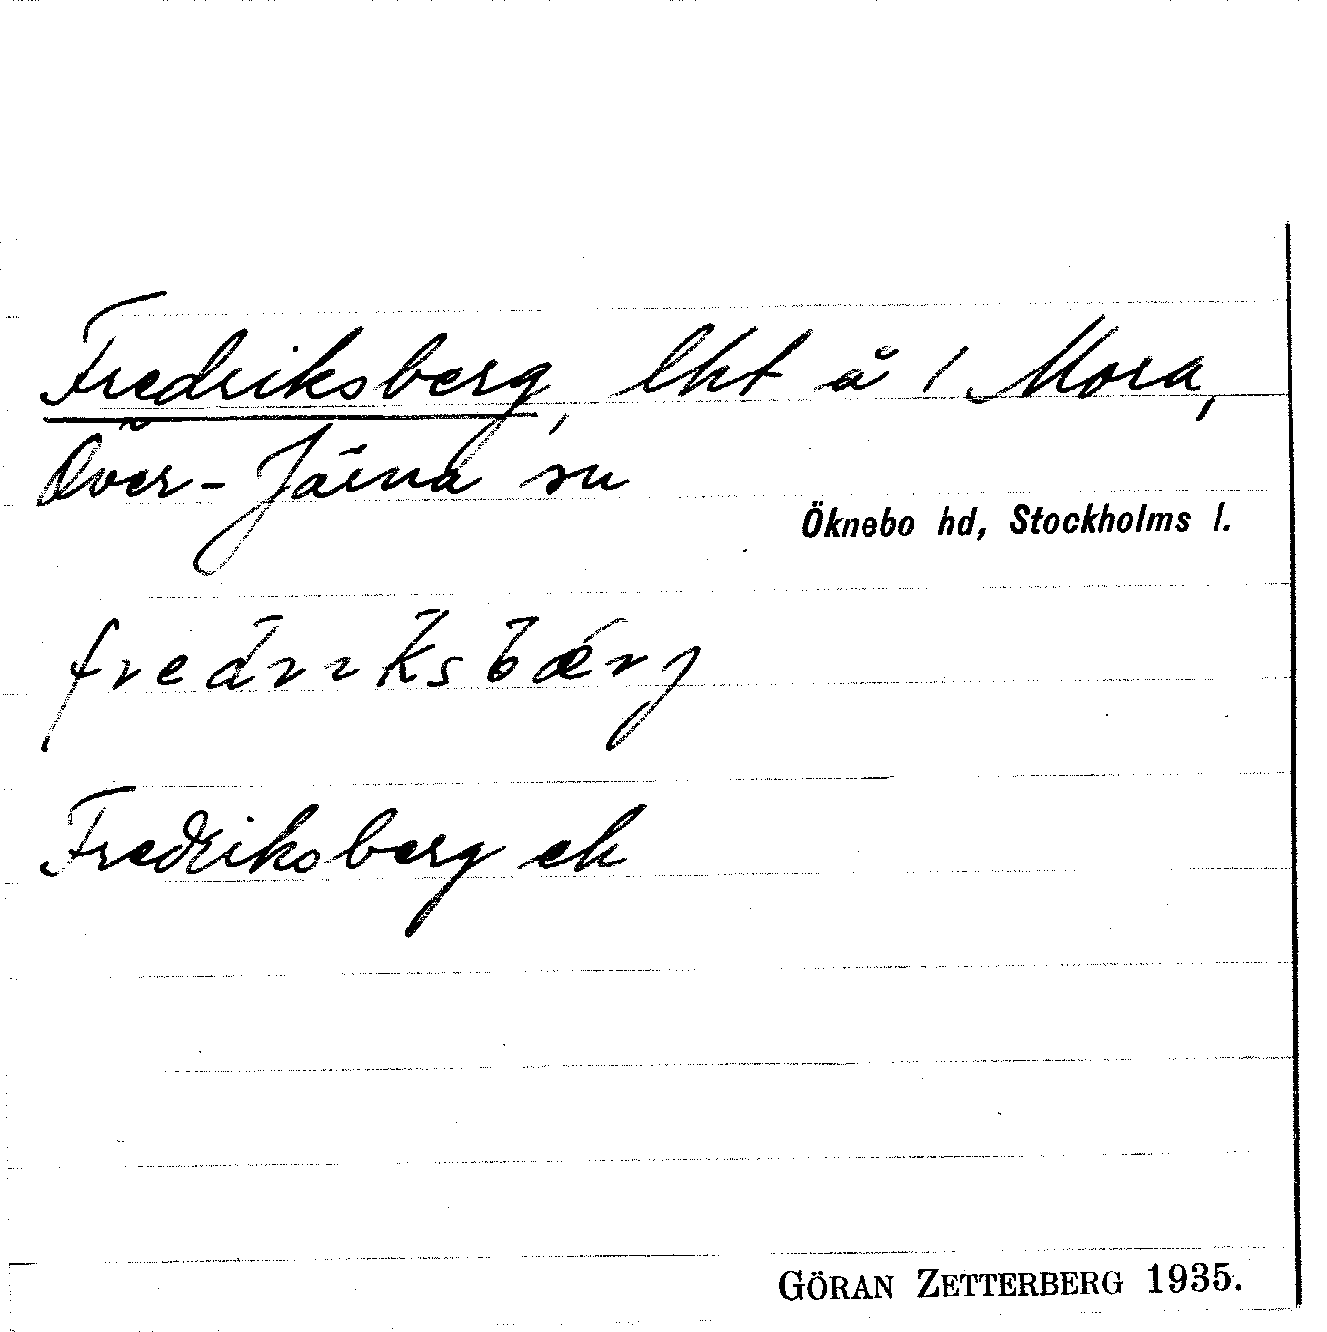 Fredriksberg, lht å 1 Mora,
Över-Järna sn
Öknebo hd, Stockholms l.
fredriksbærj
Fredriksberg ek
GÖRAN ZETTERBERG 1935.